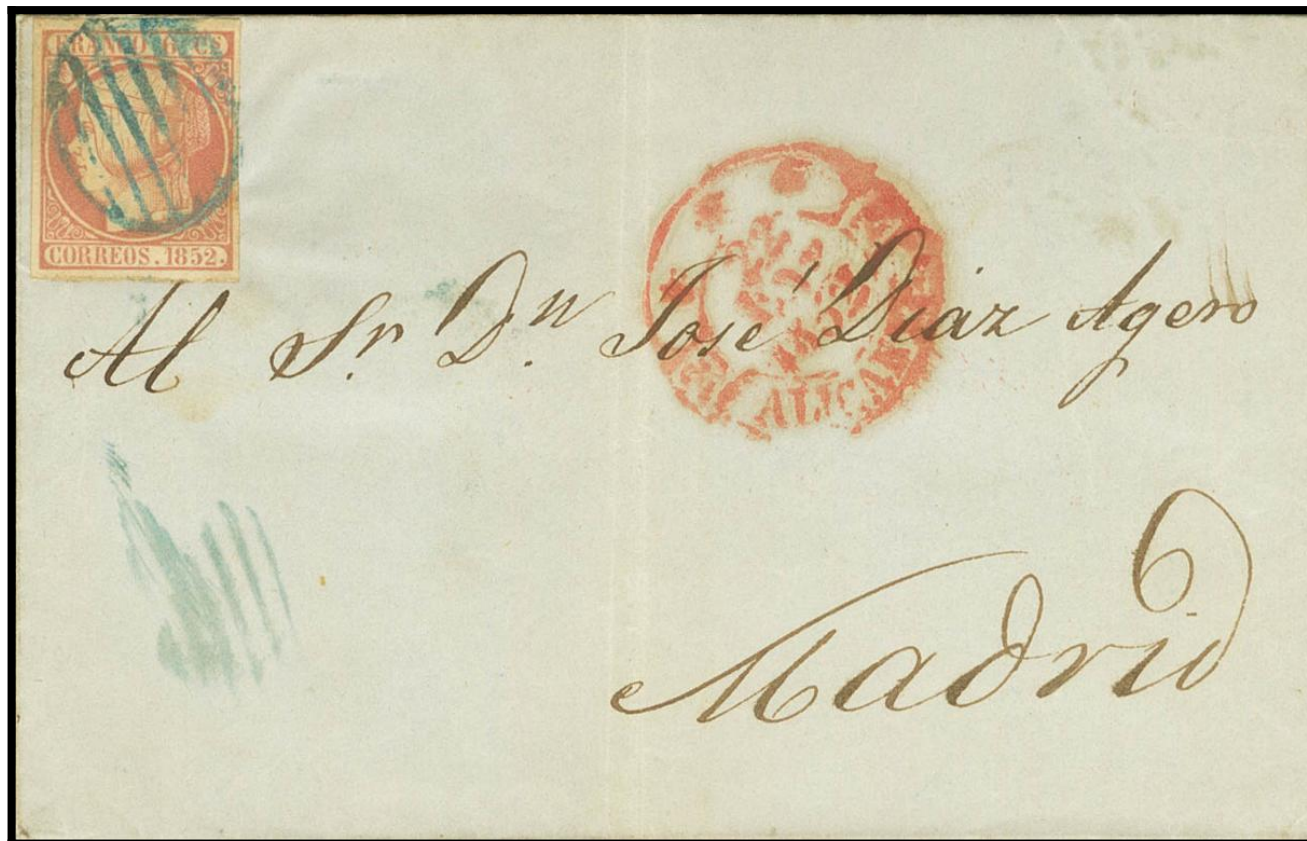 FRANCO. 6 CS
CORREOS. 1852.
Al Sr. Dn. José Díaz Agero
Madrid